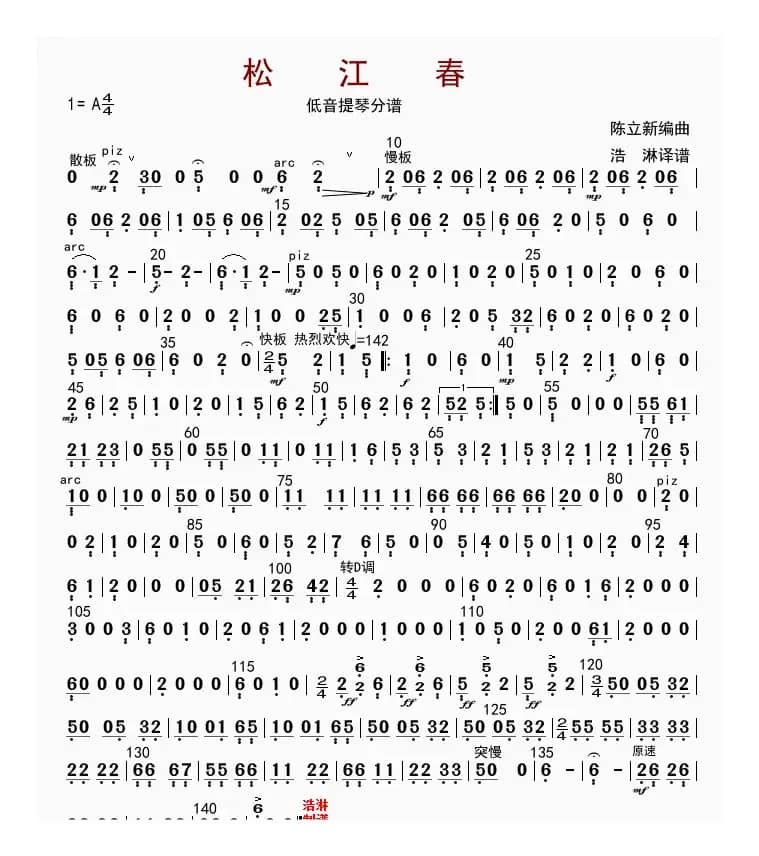 松 江 春
1= A 4/4
低音提琴分谱
陈立新编曲
浩 淋译谱
散板 piz arc 10 慢板
0 2 30 0 5 0 0 6 2 | 2 06 2 06 | 2 06 2 06 | 2 06 2 06
mp mf p mf mp
15
6 06 2 06 | 1 05 6 06 | 2 02 5 05 | 6 06 2 05 | 6 06 2 0 | 5 0 6 0
arc 20 piz 25
6·1 2 – | 5 – 2 – | 6·1 2 – | 5 0 5 0 | 6 0 2 0 | 1 0 2 0 | 5 0 1 0 | 2 0 6 0
f mp
30
6 0 6 0 | 2 0 0 2 | 1 0 0 25 | 1 0 0 6 | 2 0 5 32 | 6 0 2 0 | 6 0 2 0
35 快板 热烈欢快 ♩=142 40
5 05 6 06 | 6 0 2 0 | 2/4 5 2 | 1 5 |: 1 0 | 6 0 | 1 5 | 2 2 | 1 0 | 6 0
mf f mp f
45 50 1 55
2 6 | 2 5 | 1 0 | 2 0 | 1 5 | 6 2 | 1 5 | 6 2 | 6 2 | 52 5 :| 5 0 | 5 0 | 0 0 | 55 61
mp f
60 65 70
21 23 | 0 55 | 0 55 | 0 11 | 0 11 | 1 6 | 5 3 | 5 3 | 2 1 | 5 3 | 2 1 | 2 1 | 26 5
arc 75 80 piz
10 0 | 10 0 | 50 0 | 50 0 | 11 11 | 11 11 | 66 66 | 66 66 | 20 0 | 0 0 | 2 0
85 90 95
0 2 | 1 0 | 2 0 | 5 0 | 6 0 | 5 2 | 7 6 | 5 0 | 0 5 | 4 0 | 5 0 | 1 0 | 2 0 | 2 4
100 转D调
6 1 | 2 0 | 0 0 | 05 21 | 26 42 | 4/4 2 0 0 0 | 6 0 2 0 | 6 0 1 6 | 2 0 0 0
105 110
3 0 0 3 | 6 0 1 0 | 2 0 6 1 | 2 0 0 0 | 1 0 0 0 | 1 0 5 0 | 2 0 0 61 | 2 0 0 0
115 120
60 0 0 0 | 2 0 0 0 | 6 0 1 0 | 2/4 2 2 6 6 | 6 2 2 6 | 5 2 2 5 | 5 2 2 5 | 2 2 | 3/4 50 05 32
ff ff ff ff
125
50 05 32 | 10 01 65 | 10 01 65 | 50 05 32 | 50 05 32 | 2/4 55 55 | 33 33
130 突慢 135 原速
22 22 | 66 67 | 55 66 | 11 22 | 66 11 | 22 33 | 50 0 | 6 – | 6 – | 26 26
mf
140 6 浩淋